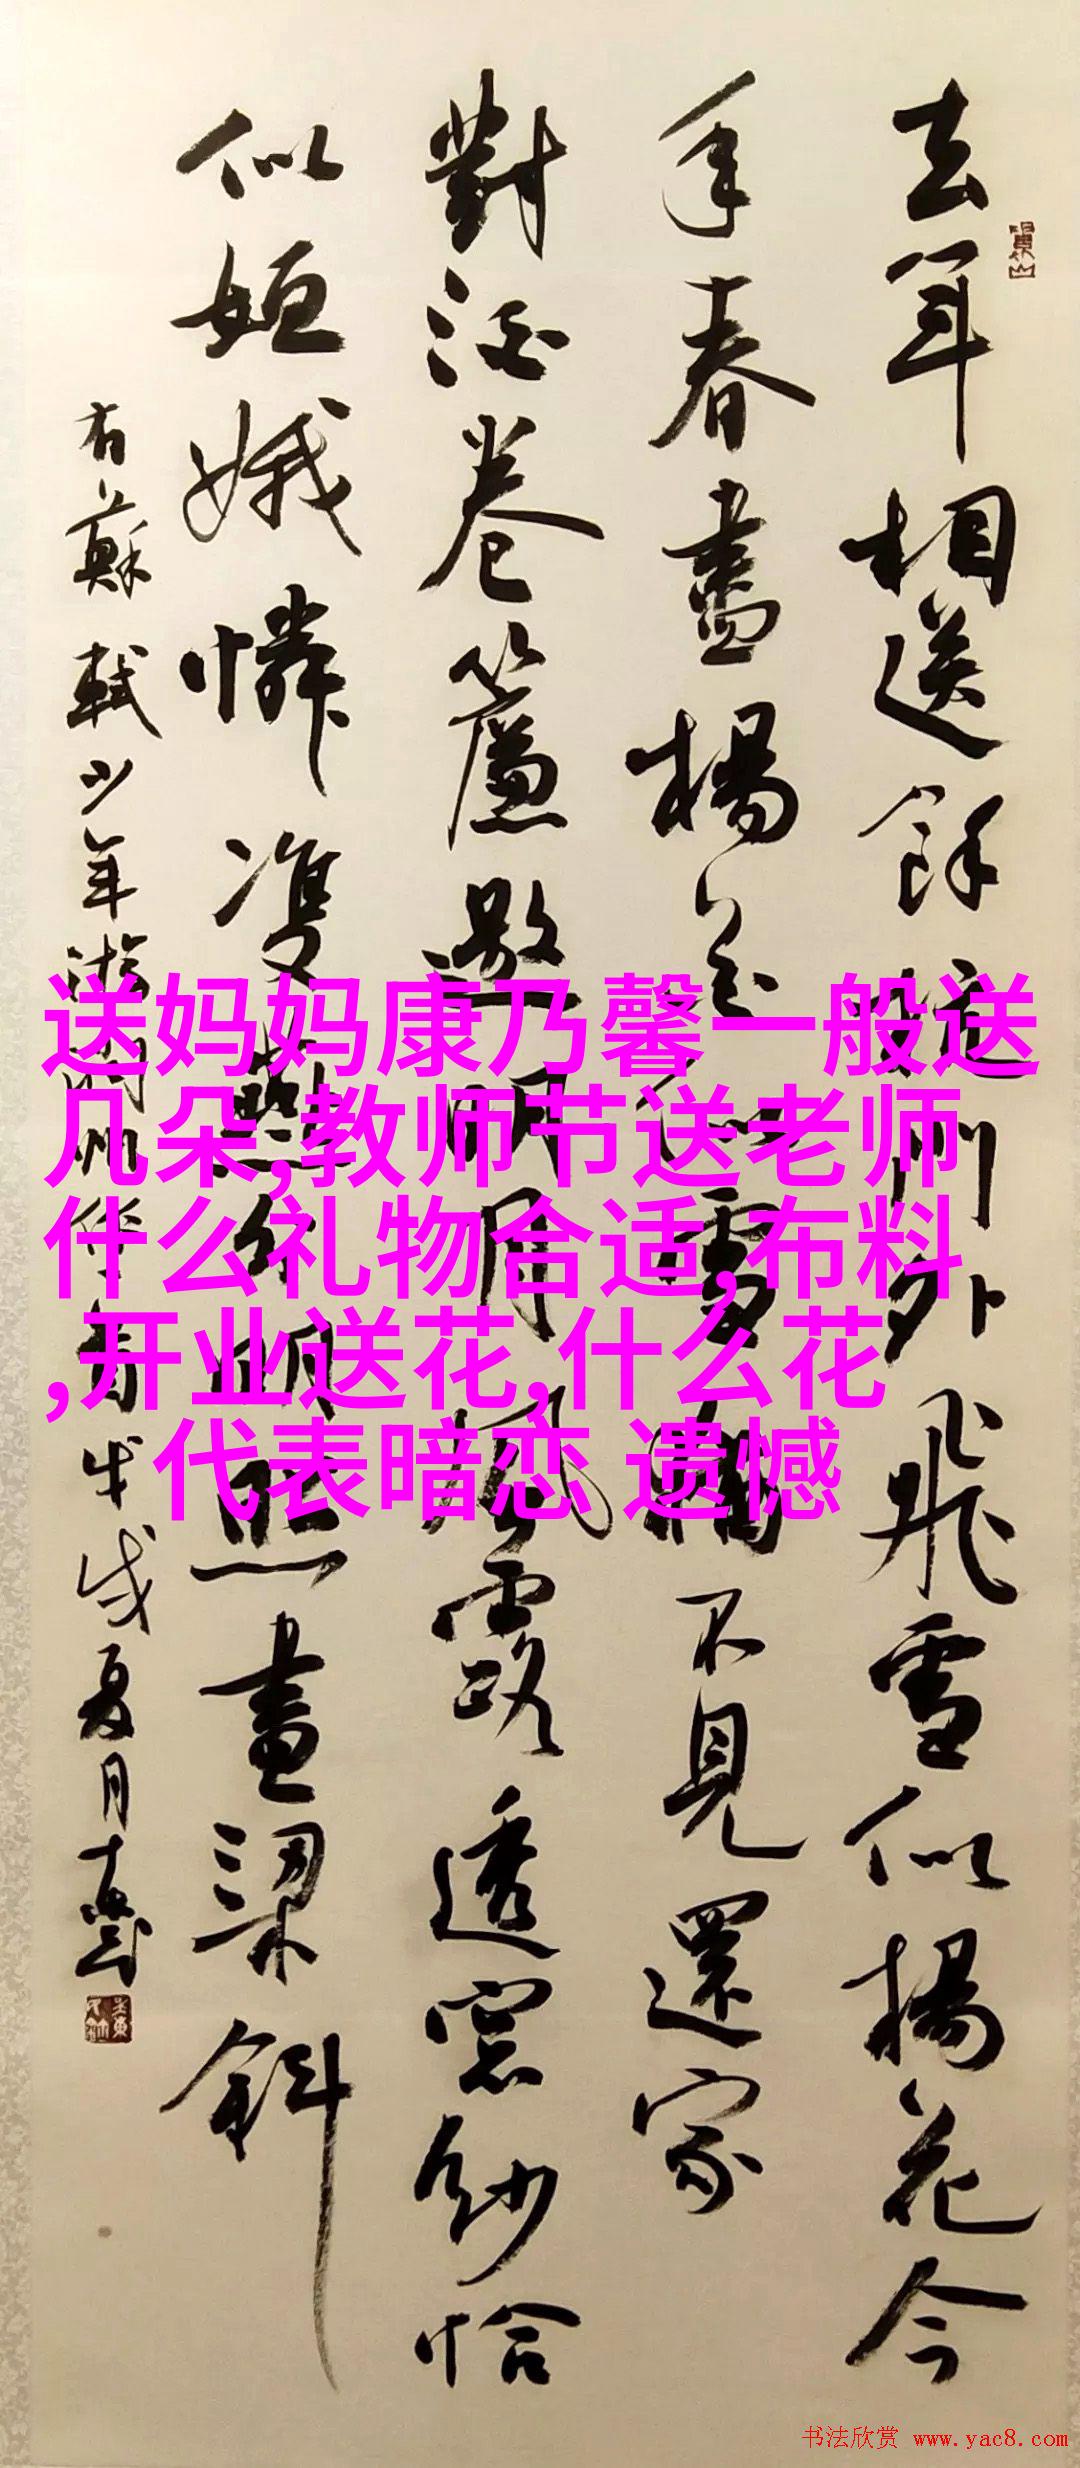 去年相送餘杭門外飛雪似楊花今
年春盡楊花似雪猶不見還家
對酒卷簾邀明月風露透窗紗恰
似姮娥憐雙燕分明照畫梁斜
右蘇軾少年游潤州作戊戌夏月
送妈妈康乃馨一般送
几朵,教师节送老师
什么礼物合适,布料
,开业送花,什么花
代表暗恋 遗憾
书法欣赏 www.yac8.com